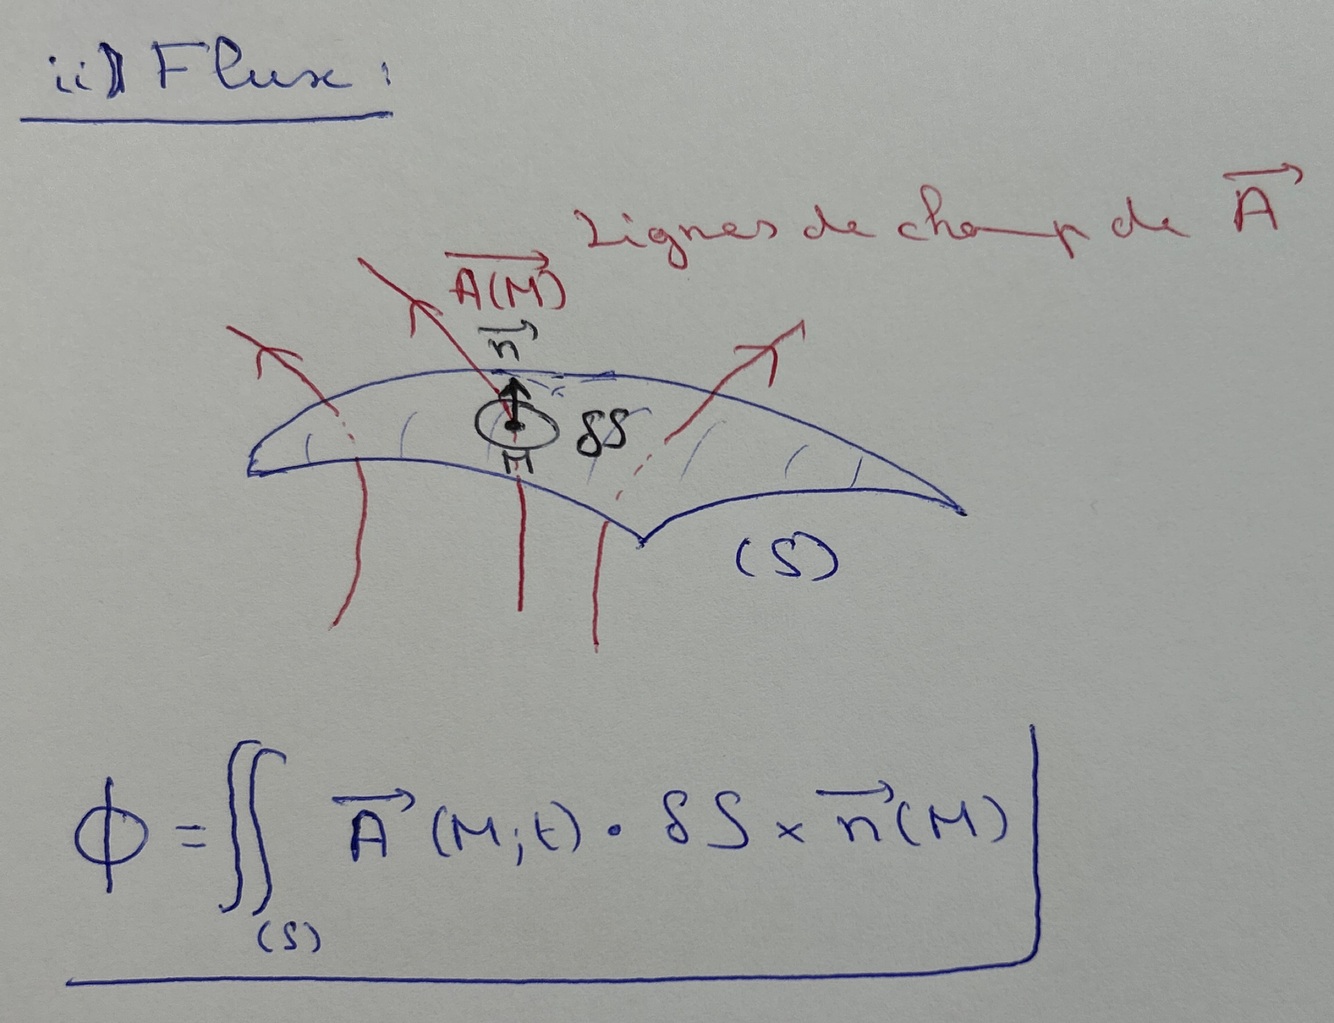 ii) Flux :
Lignes de champ de A⃗
A(M)⃗
n⃗
δS
M
(S)
ϕ = ∬ A⃗ (M;t) • δS × n⃗(M)
(S)